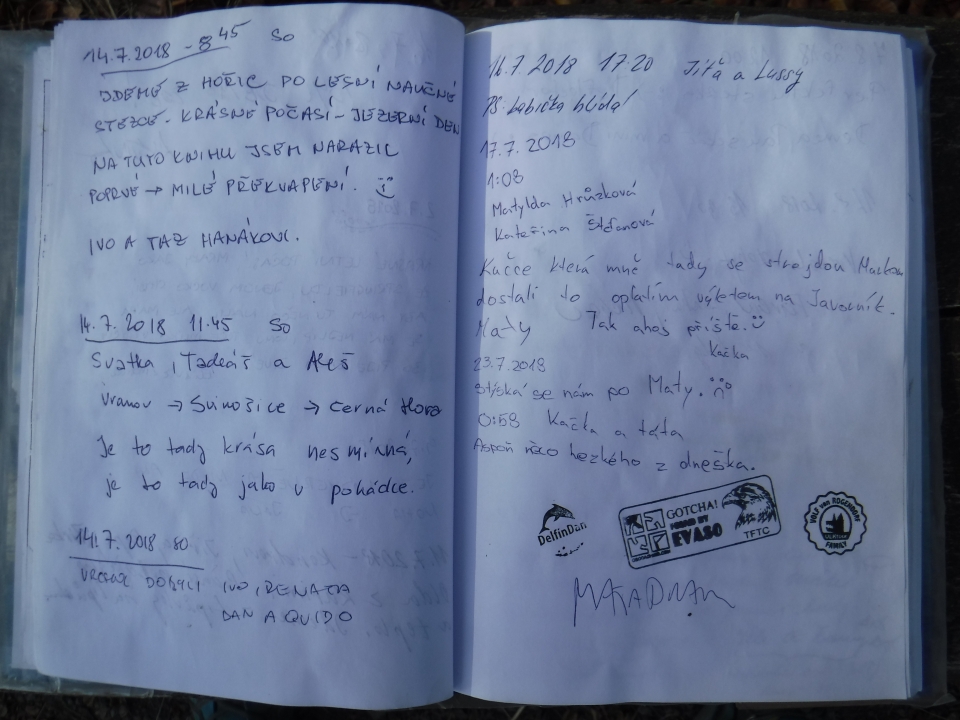 14.7.2018 - 8 45 SO
JDEME Z HOŘIC PO LESNÍ NAUČNÉ
STEZCE. KRÁSNÉ POČASÍ - JEZERNÍ DEN
NA TUTO KNIHU JSEM NARAZIL
POPRVÉ → MILÉ PŘEKVAPENÍ.
IVO A TAZ HANÁKOVI.
14.7.2018 11.45 SO
Svatka, Tadeáš a Aleš
Vranov → Svinošice → Černá Hora
Je to tady krása nesmírná,
je to tady jako v pohádce.
14.7.2018 SO
VRCHOL DOBYLI IVO, RENATA
DAN A QUIDO
16.7.2018 17:20 Jiřa a Lassy
PS: Babička hlídá!
17.7.2018
1:08
Matylda Hrůzková
Kateřina Štefanová
Kačce která mně tady se strejdou Markem
dostali to oplatím výletem na Javorník.
Maty Tak ahoj příště.
Kačka
23.7.2018
Stýská se nám po Maty.
0:58 Kačka a táta
Aspoň něco hezkého z dneška.
DelfinDan
GOTCHA!
EVASO
TFTC
FAMILY